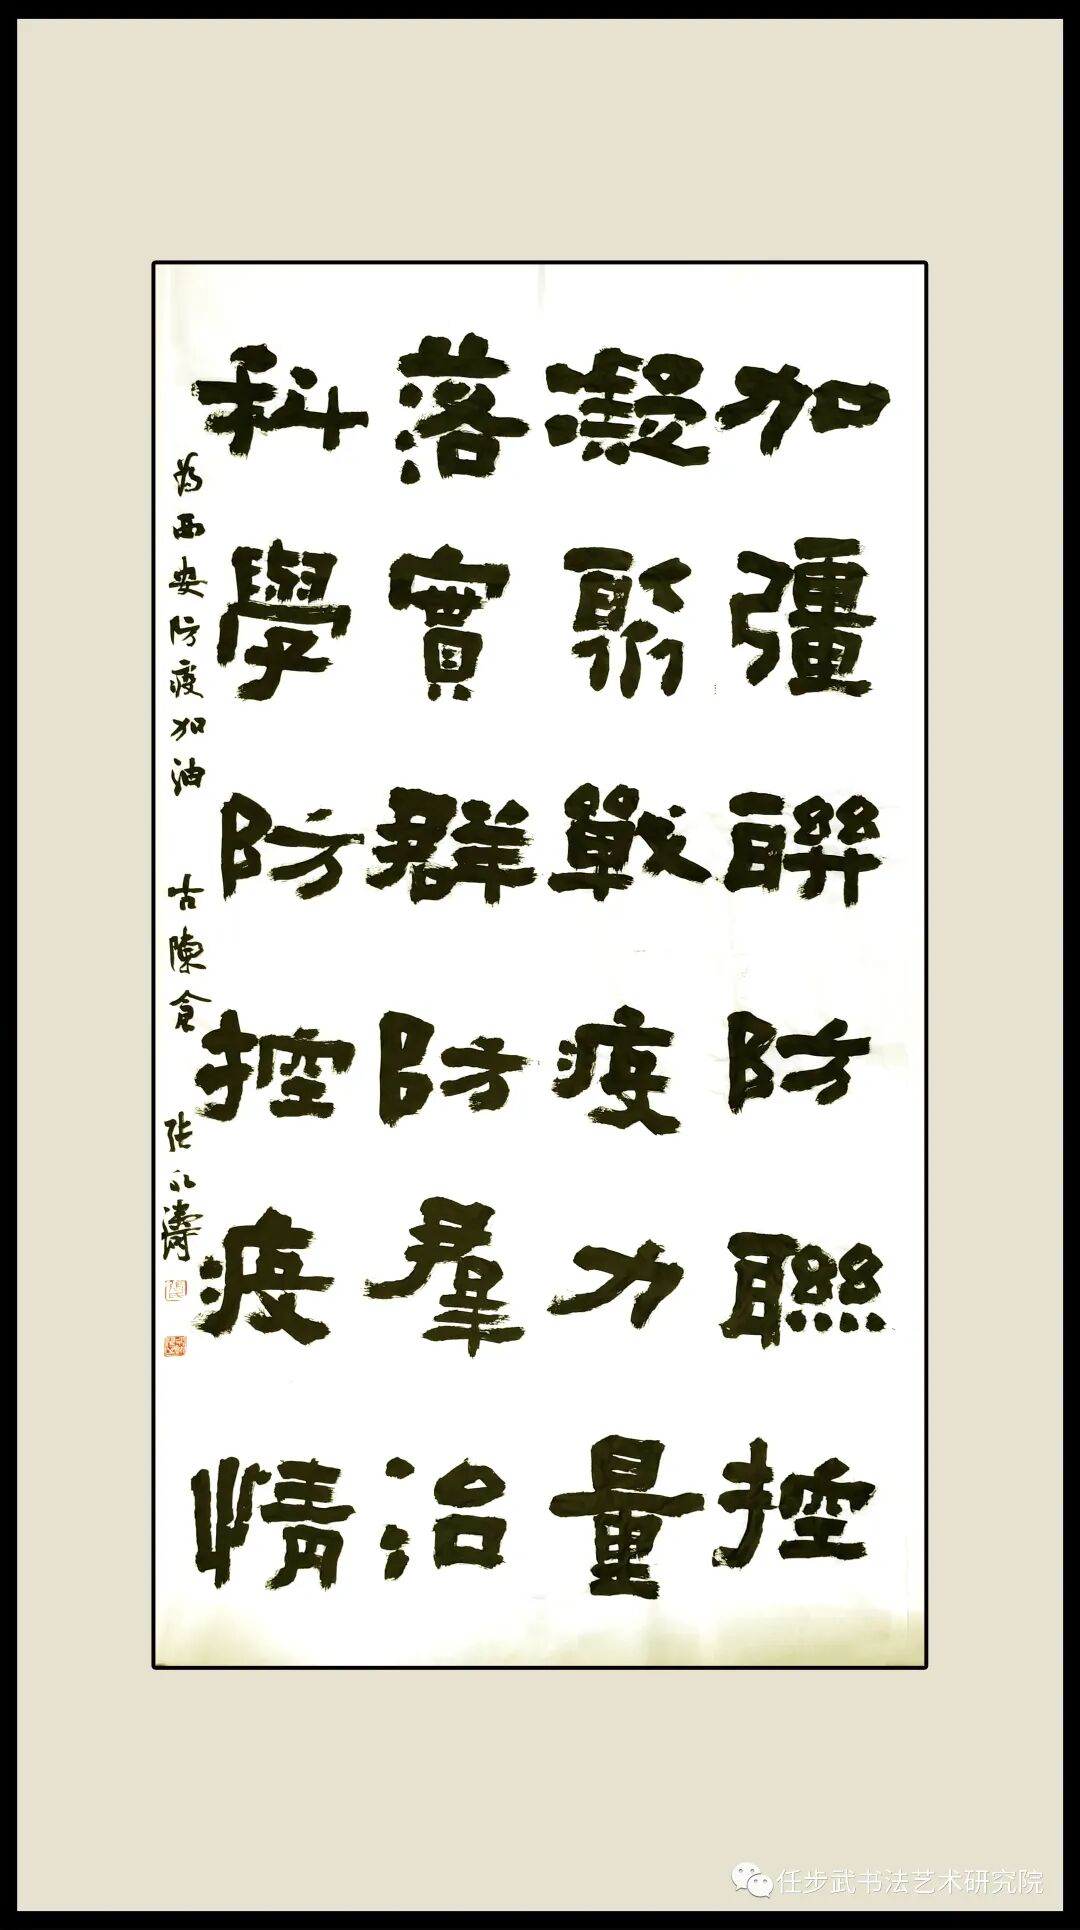 加彊聯防聯控
凝聚戰疫力量
落實群防羣治
科學防控疫情
为西安防疫加油 古陳倉 张永濤
任步武书法艺术研究院